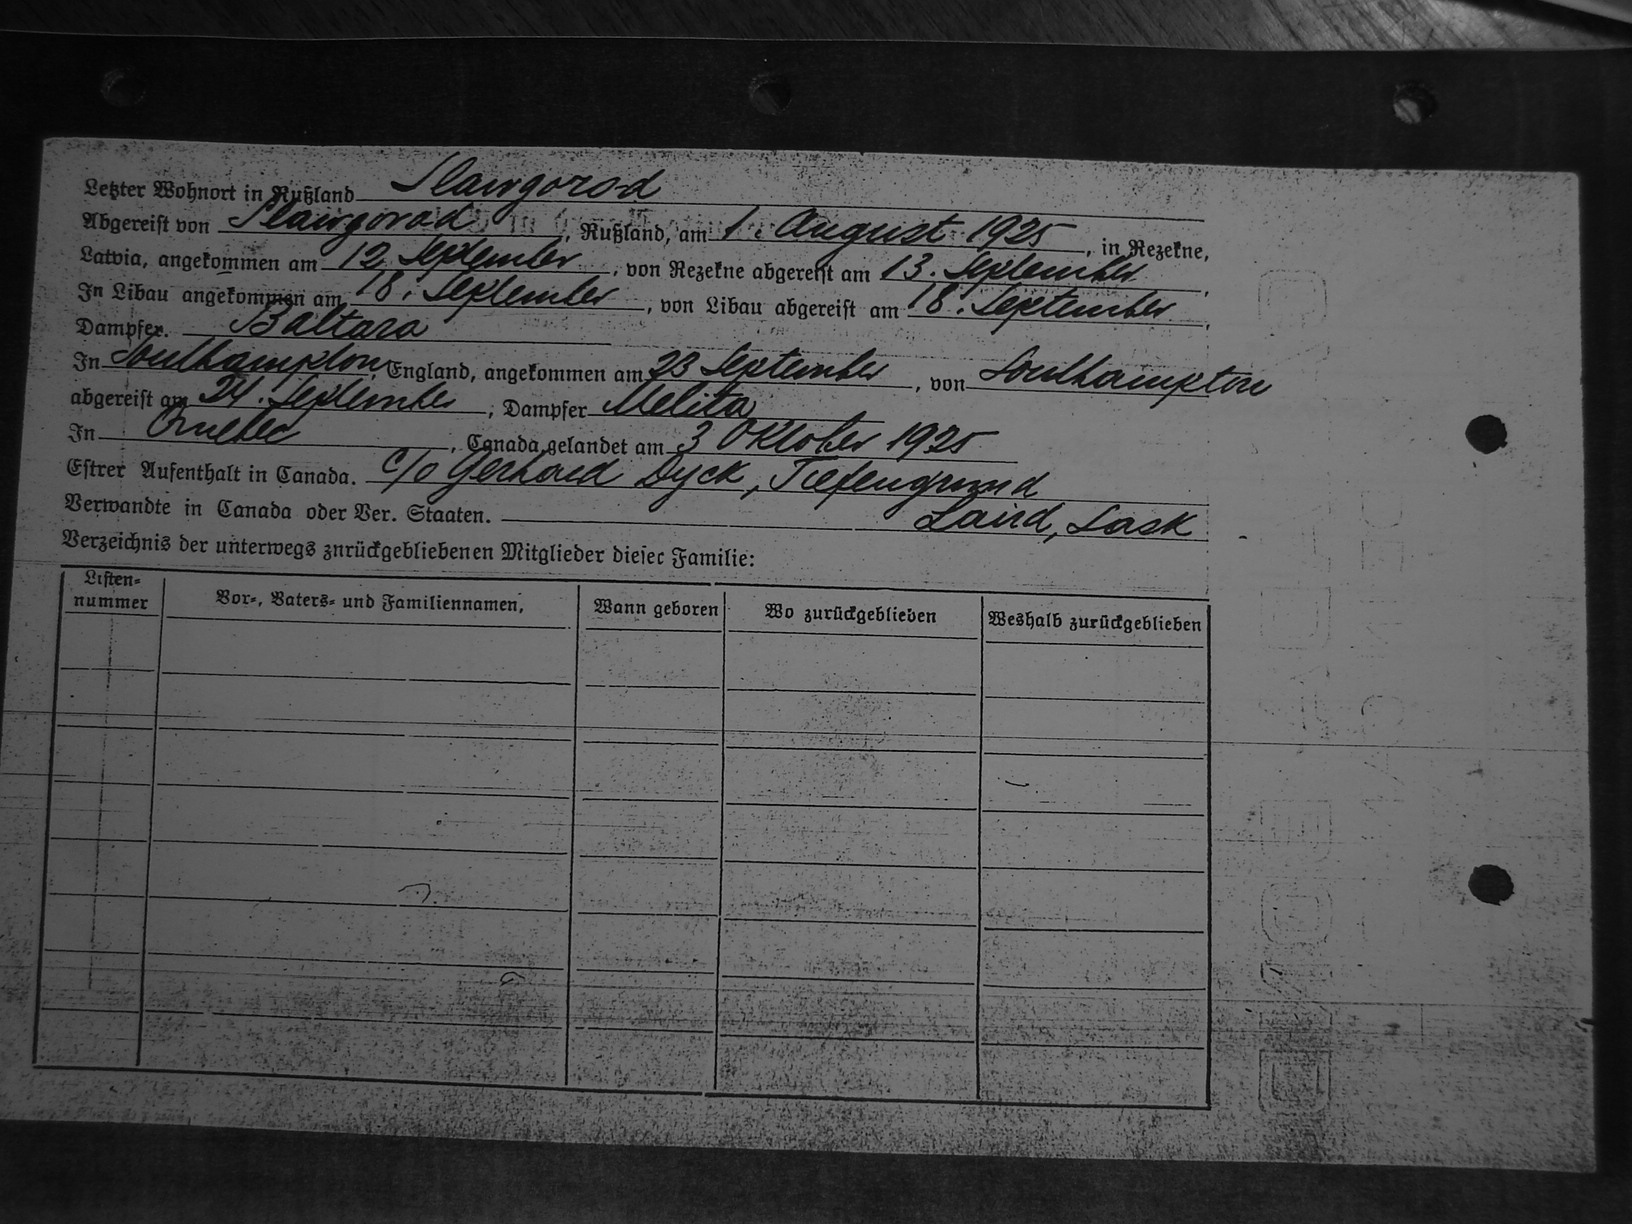 Letzter Wohnort in Rußland Slawgorod
Abgereist von Slawgorod, Rußland, am 1. August 1925, in Rezekne,
Latvia, angekommen am 12 September, von Rezekne abgereist am 13. September,
In Libau angekommen am 18. September, von Libau abgereist am 18. September,
Dampfer. Baltara
In Southampton, England, angekommen am 23 September, von Southampton
abgereist am 24. September; Dampfer Melita
In Quebec, Canada gelandet am 3 Oktober 1925
Estrer Aufenthalt in Canada. c/o Gerhard Dyck, Tiefengrund
Verwandte in Canada oder Ver. Staaten. Laird, Sask.
Verzeichnis der unterwegs znrückgebliebenen Mitglieder dieser Familie:
Listen-
nummer Vor-, Vaters- und Familiennamen, Wann geboren Wo zurückgeblieben Weshalb zurückgeblieben